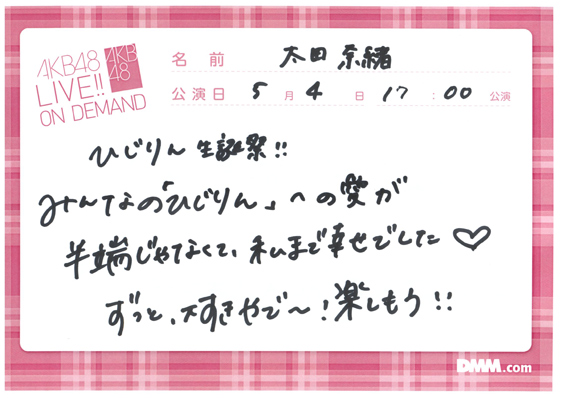 AKB48
LIVE!!
ON DEMAND
AKB
48
名前 太田奈緒
公演日 5月4日 17:00 公演
ひじりん生誕祭!!
みんなの「ひじりん」への愛が
半端じゃなくて、私まで幸せでした♡
ずっと、大すきやで〜!楽しもう!!
DMM.com